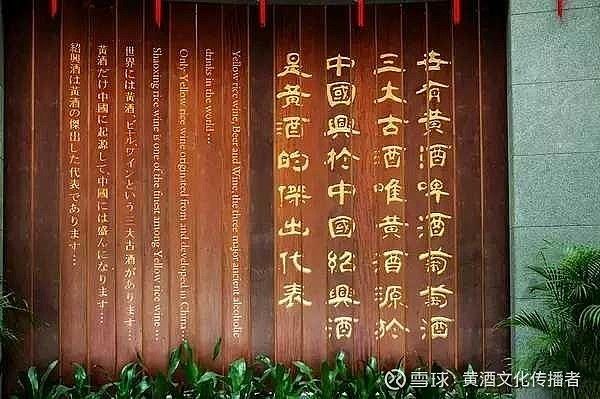 世有黃酒啤酒葡萄酒
三大古酒唯黃酒源於
中國興於中國紹興酒
是黃酒的傑出代表
Yellow rice wine, Beer and Wine, the three major ancient alcoholic
drinks in the world…
Only Yellow rice wine originated from and developed in China…
Shaoxing rice wine is one of the finest among Yellow rice wine…
世界には黄酒、ビール、ワインという三大古酒があります…
黄酒だけ中國に起源して、中國には盛んになります…
紹興酒は黄酒の傑出した代表であります…
雪球:黄酒文化传播者